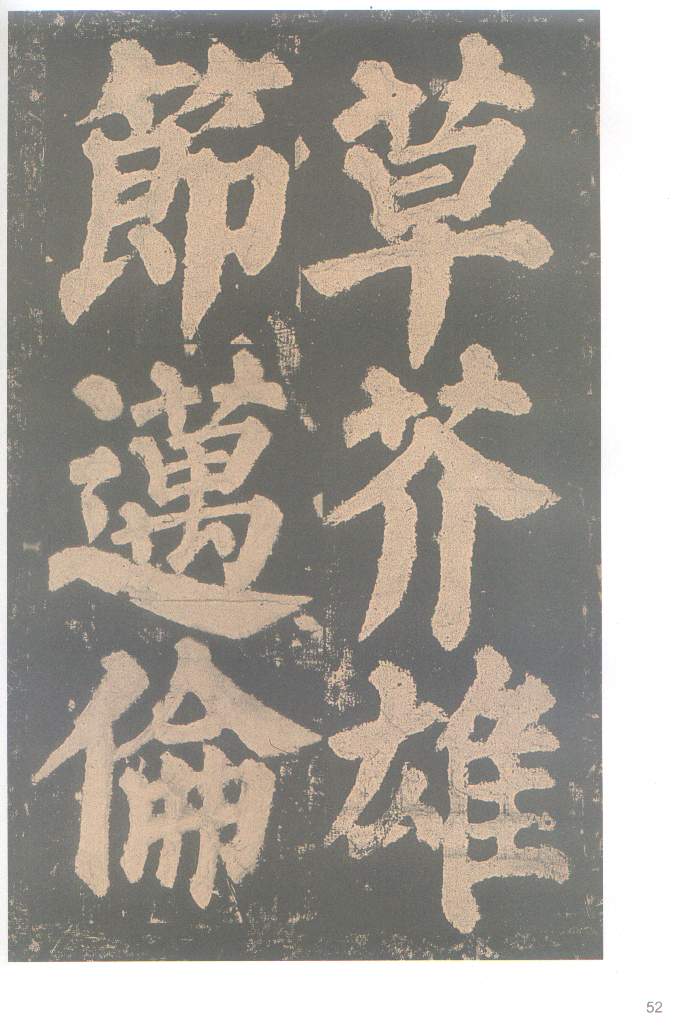 草芥雄
節邁倫
52